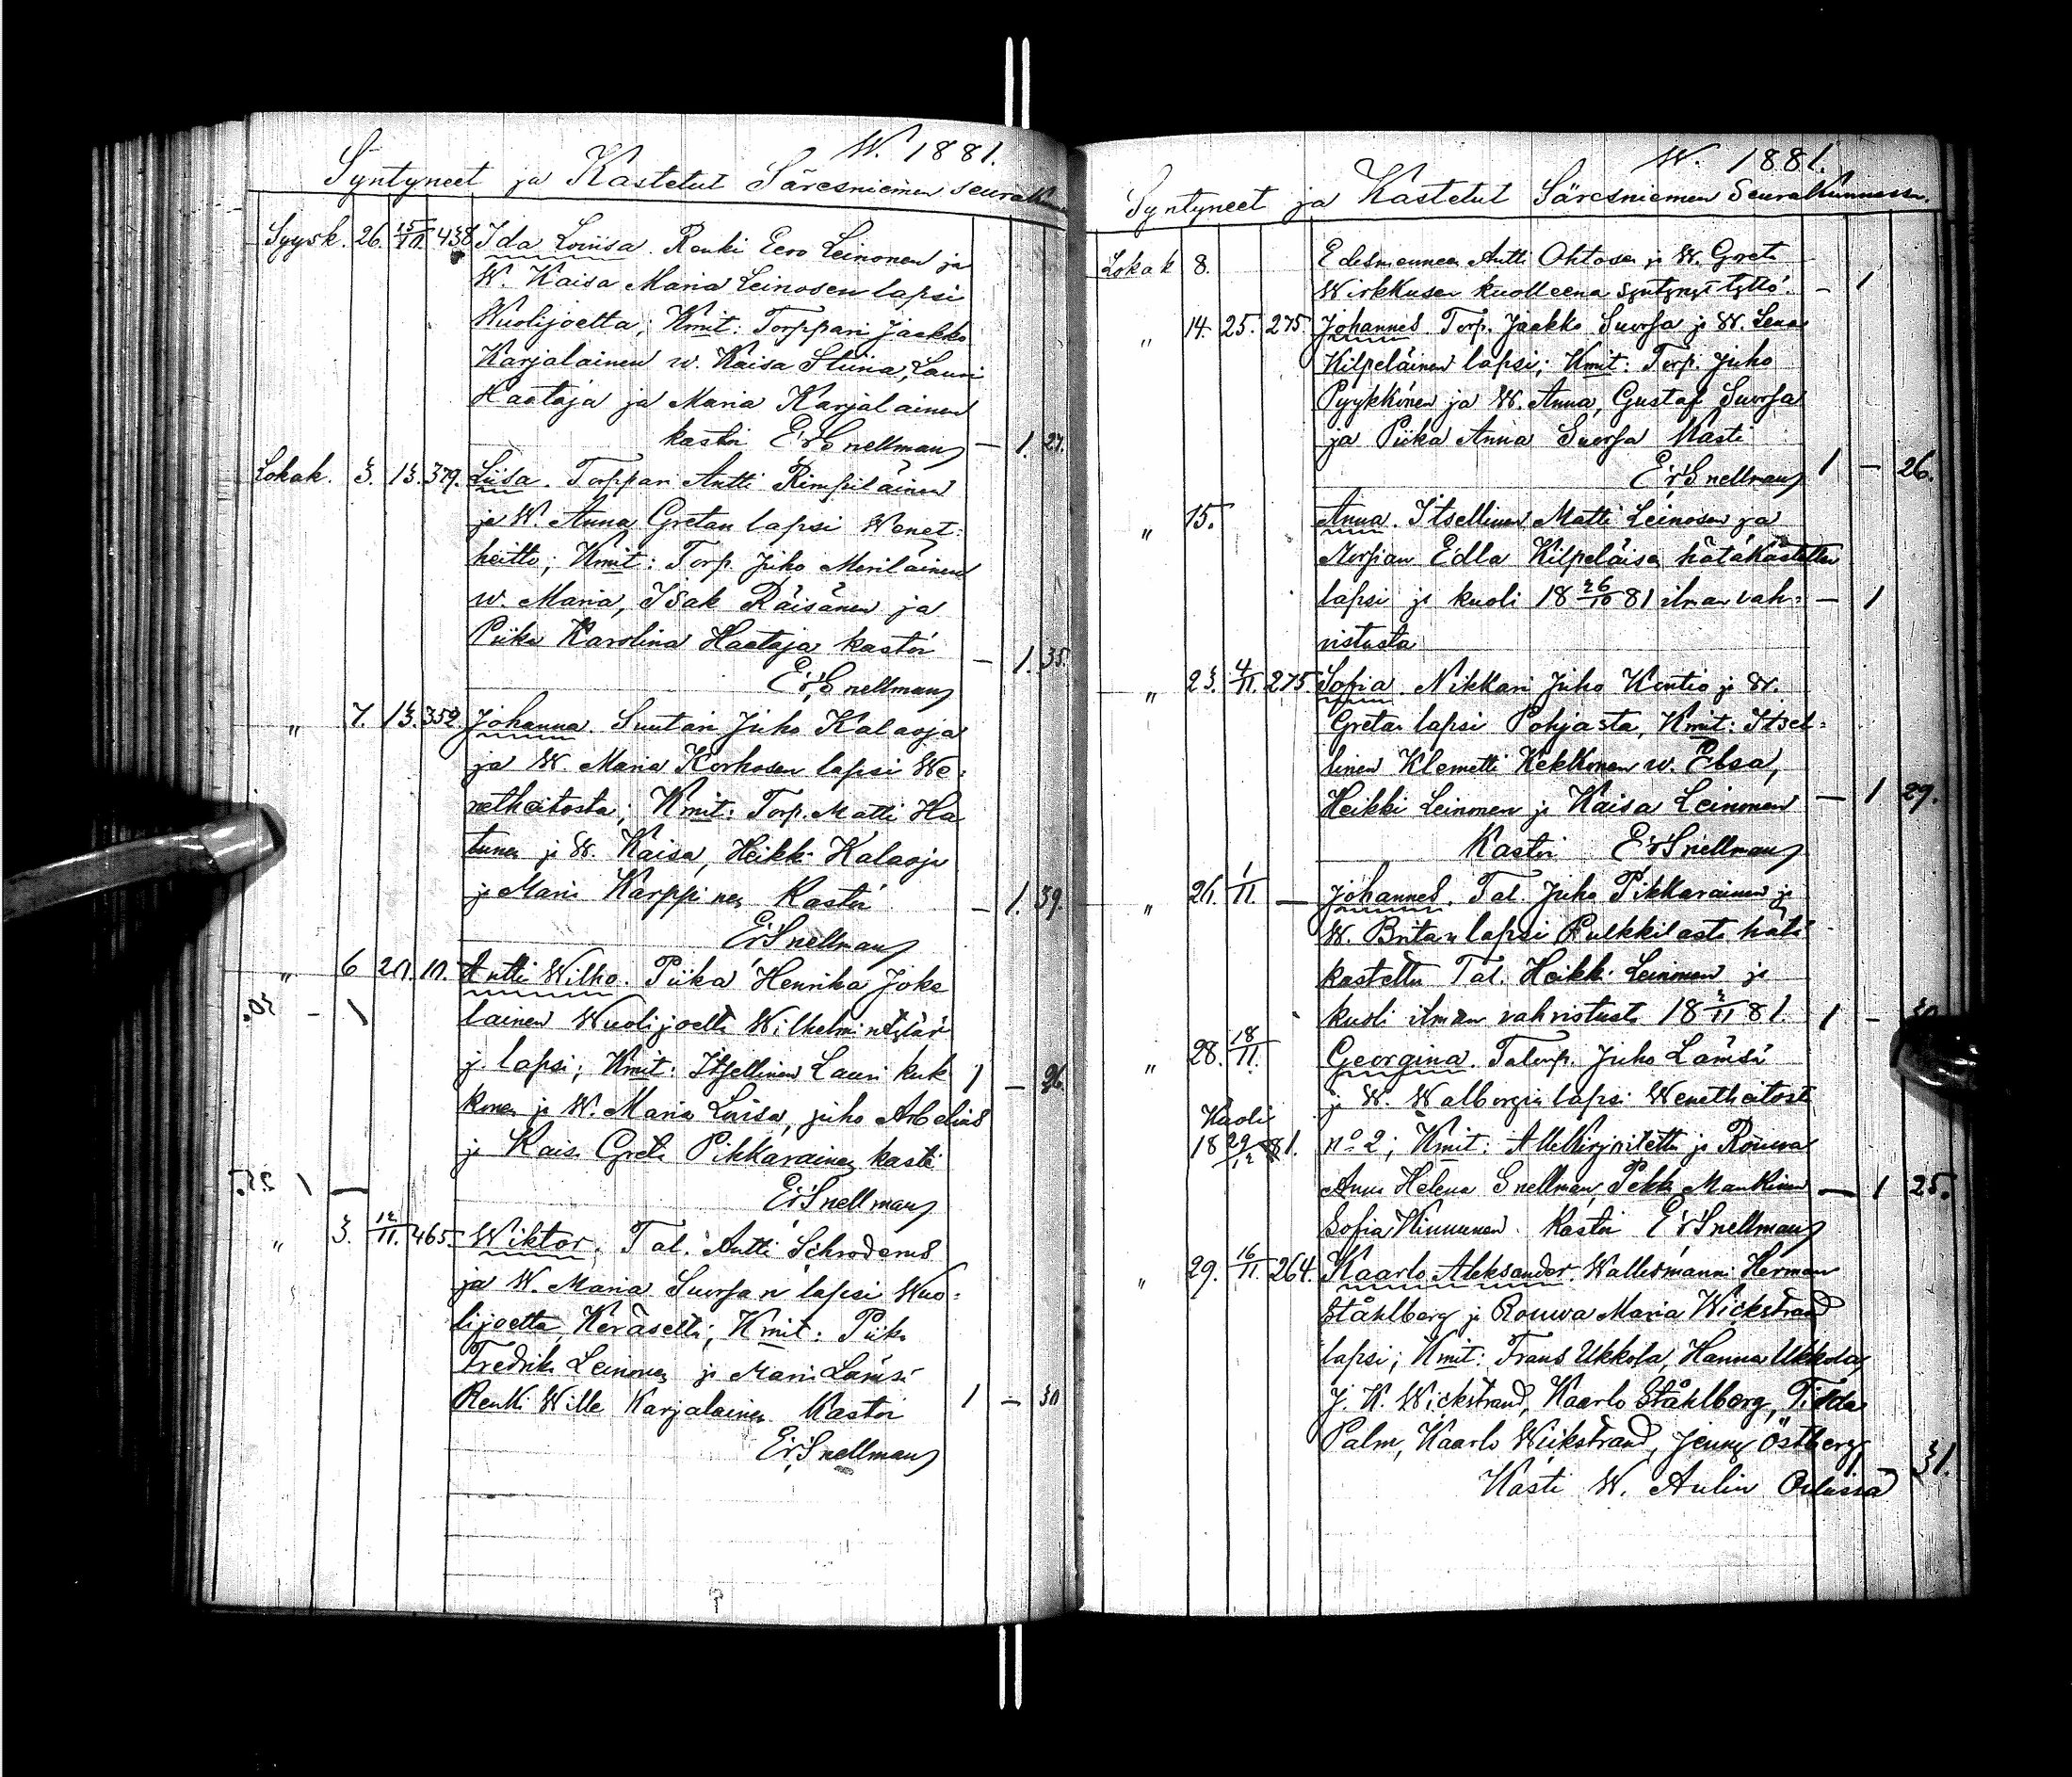 W. 1881.
Syntyneet ja Kastetut Säresniemen seurak
Syysk. 26. 15/10. 438 Ida Loviisa. Renki Eero Leinonen ja
W. Kaisa Maria Leinosen lapsi
Wuolijoelta; Kmit: Torppari Jaakko
Karjalainen w. Kaisa Stiina, Lauri
Haataja ja Maria Karjalainen
kastoi ErSnellman — 1. 27.
Lokak. 3. 13. 379. Liisa. Torppari Antti Rimpiläinen
ja W. Anna Gretan lapsi Wenet-
heitto; Kmit: Torp. Juho Meriläinen
w. Maria, Isak Räisänen ja
Piika Karolina Haataja kastoi — 1. 35.
ErSnellman
" 7. 13. 352. Johanna. Suutari Juho Kalaoja
ja W. Maria Korhosen lapsi We-
netheitosta; Kmit: Torp. Matti Ha
tunen ja W. Kaisa, Heikki Kalaoja
ja Maria Karppinen Kastoi — 1. 39.
ErSnellman
" 6 20. 10. Antti Wilho. Piika Henrika Joke
lainen Wuolijoelta Wilhelmin tytär
30. - 1
j. lapsi; Kmit: Itsellinen Lauri Kuk 1 — 26.
konen ja W. Maria Lovisa, Juho Arbelius
ja Kaisa Greta Pikkarainen kasti
1 25. —
ErSnellman
" 3. 12/11. 465. Wiktor. Tal. Antti Schroderus
ja W. Maria Suorsan lapsi Wuo-
lijoelta, Keräseltä; Kmit: Piika
Fredrika Leinonen ja Maria Lämsä
Renki Wille Karjalainen Kastoi 1 — 30
ErSnellman
W. 1881.
Syntyneet ja Kastetut Säresniemen Seurakunnassa.
Lokak 8. Edesmenneen Antti Ohtosen ja W. Greta
Wirkkusen kuolleena syntynyt tyttö. — 1
" 14. 25. 275. Johannes. Torp. Jaakko Suorsa ja W. Leena
Kilpeläinen lapsi; Kmit: Torp. Juho
Pyykkönen ja W. Anna, Gustaf Suorsa
ja Piika Anna Suorsa Kasti
ErSnellman 1 — 26.
" 15. Anna. Itsellinen Matti Leinosen ja
Morsian Edla Kilpeläisen hätäkastettu
lapsi ja kuoli 18 26/10 81 ilman vah- — 1
vistusta
" 23. 4/11. 275. Sofia. Nikkari Juho Kontio ja W.
Gretan lapsi Pohjasta, Kmit: Itsel-
linen Klemetti Kekkonen w. Elsa,
Heikki Leinonen ja Kaisa Leinonen — 1 29.
Kastoi ErSnellman
" 21. 1/11. — Johannes. Tal. Juho Pikkarainen ja
W. Britan lapsi Pulkkilasta hätä
kastettu Tal. Heikki Leinonen ja
kuoli ilman vahvistusta 18 2/11 81. 1 —
" 28. 18/11. Georgina. Talonp. Juho Lämsä
ja W. Walborgin lapsi Wenetheitosta
Kuoli
18 29/12 81. no 2; Kmit: Allekirjoitettu ja Rouwa
Anna Helena Snellman, Pekka Mankinen — 1 25.
Sofia Kinnunen. Kastoi ErSnellman
" 29. 16/11. 264. Kaarlo Aleksander. Wallesmanni Herman
Ståhlberg ja Rouwa Maria Wickstrand
lapsi; Kmit: Frans Ukkola, Hanna Ukkola,
J. K. Wickstrand, Kaarlo Ståhlberg, Tilda
Palm, Kaarlo Wickstrand, Jenny Östberg
Kasti W. Aulin Oulussa 1 — 31.